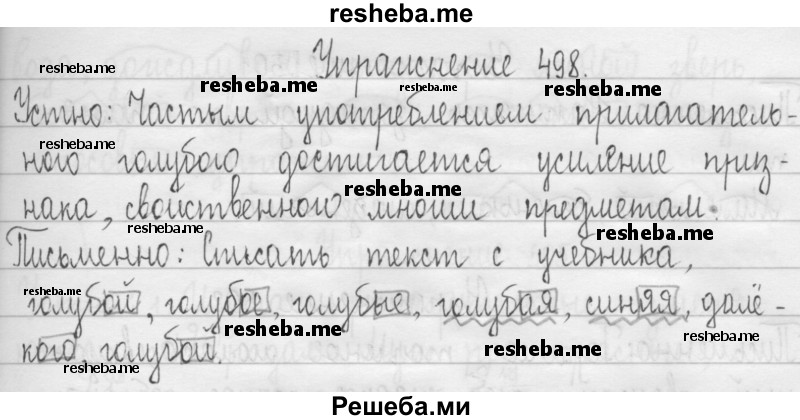 resheba.me
Упражнение 498.
resheba.me
resheba.me
resheba.me
resheba.me
Устно: Частым употреблением прилагатель-
resheba.me
ного голубого достигается усиление приз-
resheba.me
нака, свойственного многим предметам.
resheba.me
resheba.me
Письменно: Списать текст с учебника,
resheba.me
голубой, голубое, голубые, голубая, синяя, далё-
resheba.me
кого голубой.
resheba.me
resheba.me
Решеба.ми